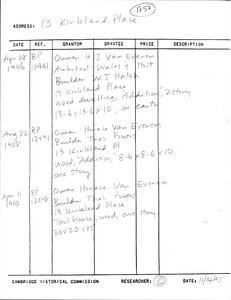 1857
ADDRESS: 13 Kirkland Place
DATE REF. GRANTOR GRANTEE PRICE DESCRIPTION
Apr 28 BP Owner H J Van Everen
1906 11441 Architect Wales & Holt
Builder W.J Hatch
13 Kirkland Place
wood dwelling, "Addition," 2 story
13-6 x 13-6 x 10,
Aug 22 BP Owner Horace Van Everen
1908 12491 Builder Thos. Powers
13 Kirkland Pl
wood, "Addition," 8-6 x 8-6 x 10
one story
Apr 11 BP Owner Horace Van Everen
1910 Builder Thos Powers
13 Kirkland Place
Tool house, wood, one story
20 x 20 x 25
CAMBRIDGE HISTORICAL COMMISSION RESEARCHER: DATE: